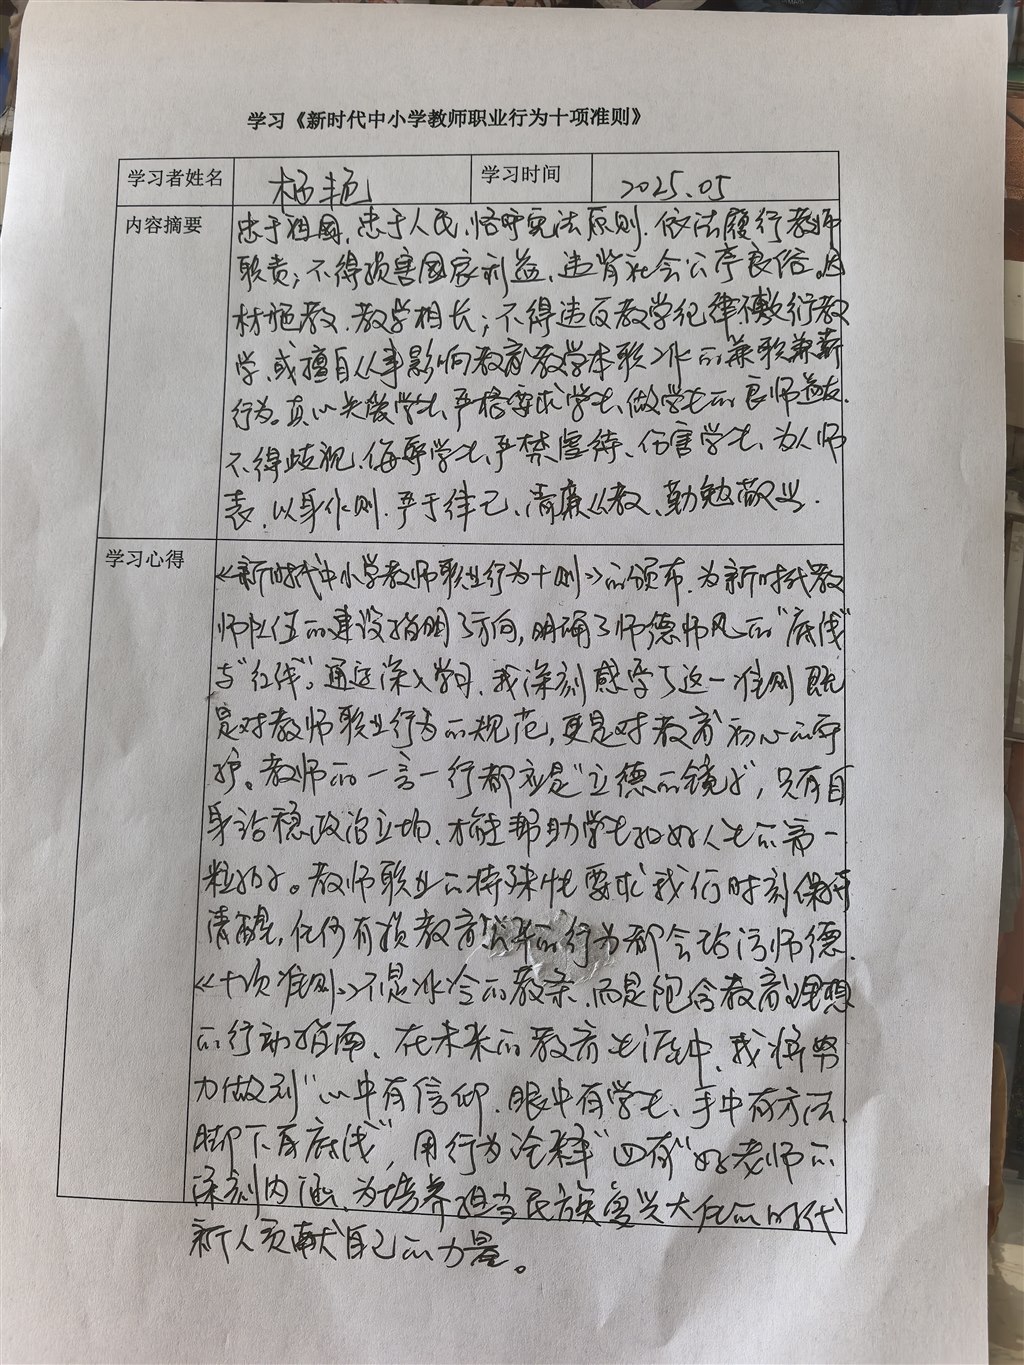 学习《新时代中小学教师职业行为十项准则》
学习者姓名 杨艳 学习时间 2025.05
内容摘要
忠于祖国、忠于人民、恪守宪法原则、依法履行教师
职责；不得损害国家利益、违背社会公序良俗。因
材施教、教学相长；不得违反教学纪律、敷衍教
学、或擅自从事影响教育教学本职工作的兼职兼薪
行为。真心关爱学生、严格要求学生、做学生的良师益友.
不得歧视、侮辱学生、严禁虐待、伤害学生、为人师
表、以身作则、严于律己、清廉从教、勤勉敬业.
学习心得
《新时代中小学教师职业行为十则》的颁布、为新时代教
师队伍的建设指明了方向，明确了师德师风的“底线”
与“红线”。通过深入学习、我深刻感受了这一准则既
是对教师职业行为的规范，更是对教育初心的守
护。教师的一言一行都应是“立德的镜子”，只有自
身站稳政治立场、才能帮助学生扣好人生的第一
粒扣子。教师职业的特殊性要求我们时刻保持
清醒，任何有损教育的行为都会玷污师德.
《十项准则》不是冰冷的教条、而是饱含教育理想
的行动指南、在未来的教育生涯中、我将努
力做到“心中有信仰、眼中有学生、手中有方法、
脚下有底线”，用行为诠释“四有”好老师的
深刻内涵、为培养担当民族复兴大任的时代
新人贡献自己的力量。